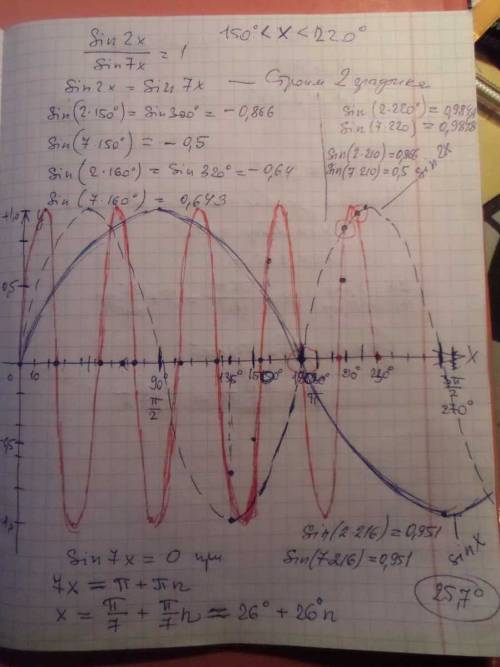 Sin 2x / Sin 7x = 1
150° < x < 220°
Sin 2x = Sin 7x — Строим 2 графика
Sin(2·150°) = Sin 300° = -0,866
Sin(7·150°) = -0,5
Sin(2·160°) = Sin 320° = -0,64
Sin(7·160°) = 0,643
Sin(2·220°) = 0,9848
Sin(7·220) = 0,9848
Sin(2·210) = 0,866
Sin(7·210) = 0,5
Sin 2x
+1,0
y
0,5
0
10
90°
π/2
135°
π
270°
3π/2
x
Sin x
Sin(2·216) = 0,951
Sin(7·216) = 0,951
Sin 7x = 0 при
7x = π + πn
x = π/7 + π/7 n ≈ 26° + 26°n
25,7°